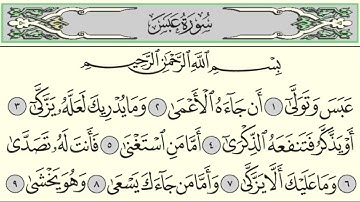 سُورَةُ عَبَسَ
بِسْمِ اللَّهِ الرَّحْمَٰنِ الرَّحِيمِ
عَبَسَ وَتَوَلَّىٰٓ ١ أَن جَآءَهُ ٱلْأَعْمَىٰ ٢ وَمَا يُدْرِيكَ لَعَلَّهُۥ يَزَّكَّىٰٓ ٣
أَوْ يَذَّكَّرُ فَتَنفَعَهُ ٱلذِّكْرَىٰٓ ٤ أَمَّا مَنِ ٱسْتَغْنَىٰ ٥ فَأَنتَ لَهُۥ تَصَدَّىٰ
٦ وَمَا عَلَيْكَ أَلَّا يَزَّكَّىٰ ٧ وَأَمَّا مَن جَآءَكَ يَسْعَىٰ ٨ وَهُوَ يَخْشَىٰ ٩